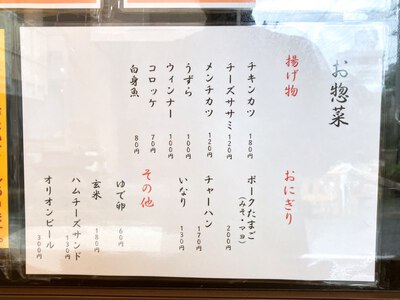 お惣菜
揚げ物
チキンカツ 180円
チーズササミ 120円
メンチカツ 120円
うずら 100円
ウィンナー 100円
コロッケ 70円
白身魚 80円
おにぎり
ポークたまご 200円
(みそ・マヨ)
チャーハン 170円
いなり 130円
その他
ゆで卵 60円
玄米 180円
ハムチーズサンド 130円
オリオンビール 300円